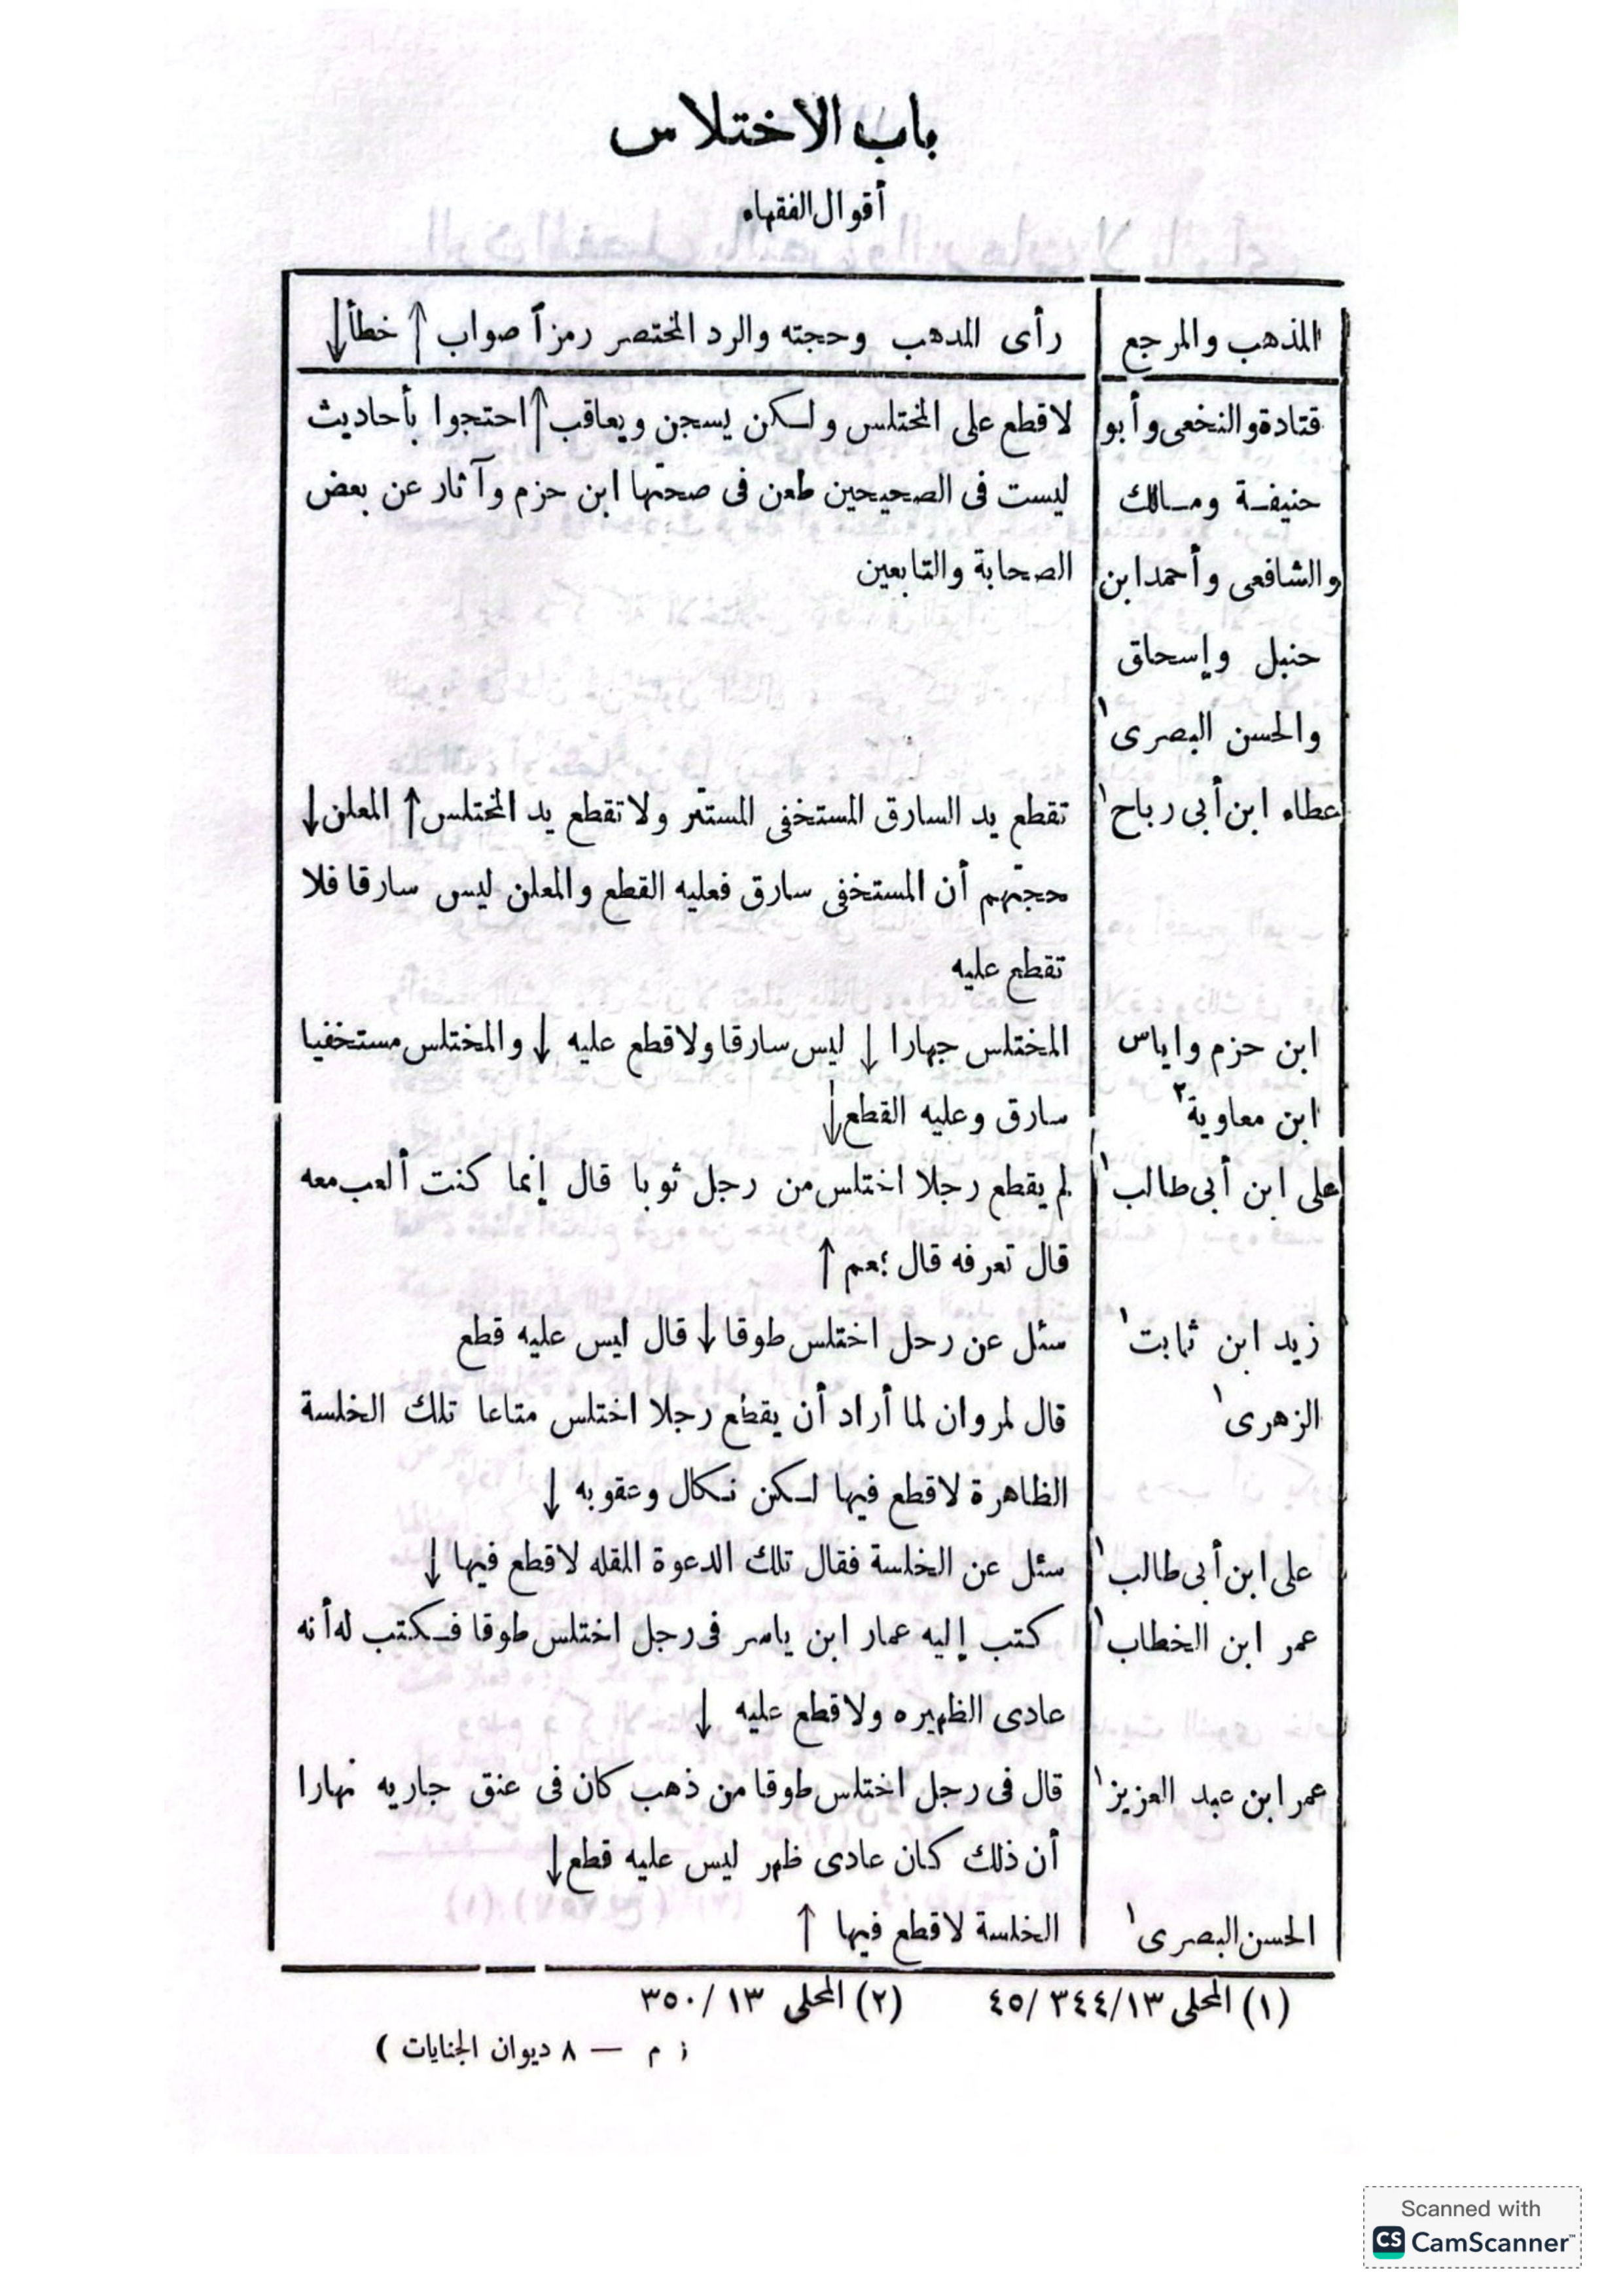 باب الاختلاس
أقوال الفقهاء
المذهب والمرجع
رأى المدهب وحجته والرد المختصر رمزآ صواب ↑ خطأ ↓
قتادة والنخعى وأبو
لاقطع على المختلس ولكن يسجن ويعاقب ↑ احتجوا بأحاديث
حنيفة ومالك
ليست فى الصحيحين طعن فى صحتها ابن حزم وآثار عن بعض
والشافعى وأحمد ابن
الصحابة والتابعين
حنبل وإسحاق
والحسن البصرى ١
عطاء ابن أبى رباح ١
تقطع يد السارق المستخفى المستتر ولاتقطع يد المختلس ↑ المعلن ↓
حجتهم أن المستخفى سارق فعليه القطع والمعلن ليس سارقا فلا
تقطع عليه
ابن حزم واياس
المختلس جهارا ↓ ليس سارقا ولاقطع عليه ↓ والمختلس مستخفيا
ابن معاوية ٢
سارق وعليه القطع ↓
على ابن أبى طالب ١
لم يقطع رجلا اختلس من رجل ثوبا قال إنما كنت ألعب معه
قال تعرفه قال نعم ↑
زيد ابن ثابت ١
سئل عن رحل اختلس طوقا ↓ قال ليس عليه قطع
الزهرى ١
قال لمروان لما أراد أن يقطع رجلا اختلس متاعا تلك الخلسة
الظاهرة لاقطع فيها لكن نكال وعقوبه ↓
على ابن أبى طالب ١
سئل عن الخلسة فقال تلك الدعوة المقله لاقطع فيها ↓
عمر ابن الخطاب ١
كتب إليه عمار ابن ياسر فى رجل اختلس طوقا فكتب له أنه
عادى الظهيره ولاقطع عليه ↓
عمر ابن عبد العزيز ١
قال فى رجل اختلس طوقا من ذهب كان فى عنق جاريه نهارا
أن ذلك كان عادى ظهر ليس عليه قطع ↓
الحسن البصرى ١
الخلسة لاقطع فيها ↑
(١) المحلى ١٣/ ٣٤٤/ ٤٥ (٢) المحلى ١٣/ ٣٥٠
م — ٨ ديوان الجنايات )
Scanned with
CS CamScanner™